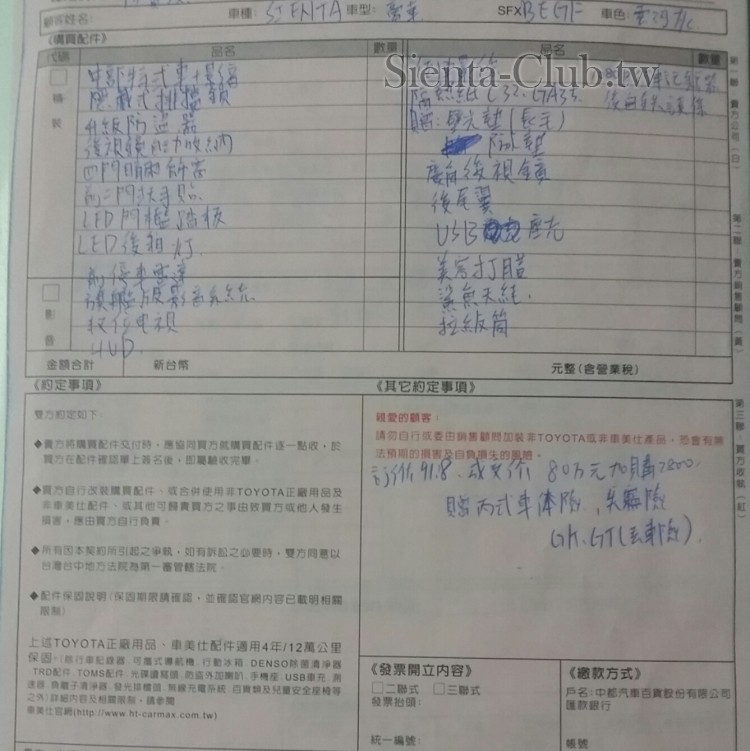 顧客姓名:
車種: SIENTA 車型:
SFX BEGF 車色:
《購買配件》
代碼 品名 數量 品名 數量
精裝
Sienta-Club.tw
隱藏式排檔鎖
升級防盜器
隔熱紙 C32. GA35.
四門晴雨飾窗
防水墊
LED門檻踏板
廣角後視鏡
LED後箱灯.
後尾翼
USB
前停車雷達
美容打腊
影音
旗艦版影音系統
鯊魚天線.
數位電視
垃圾筒
HUD.
金額合計 新台幣 元整(含營業稅)
《約定事項》
雙方約定如下:
◆賣方將購買配件交付時,應協同買方就購買配件逐一點收,於
買方在配件確認單上簽名後,即屬驗收完畢。
◆買方自行改裝購買配件、或合併使用非TOYOTA正廠用品及
非車美仕配件、或其他可歸責買方之事由致買方或他人發生
損害,應由買方自行負責。
◆所有因本契約所引起之爭執,如有訴訟之必要時,雙方同意以
台灣台中地方法院為第一審管轄法院。
◆配件保固說明(保固期限請確認,並確認官網內容已載明相關
限制)
上述TOYOTA正廠用品、車美仕配件適用4年/12萬公里
保固。(除行車記錄器、可攜式導航機、行動冰箱、DENSO除菌清淨器
、TRD配件、TOMS配件、光碟讀寫頭、防盜外加喇叭、手機座、USB車充、測
速器、負離子清淨器、發光排檔頭、無線充電系統、百貨類及兒童安全座椅等
之外)詳細內容及相關限制,請參閱
車美仕官網(http://www.ht-carmax.com.tw)
《其它約定事項》
親愛的顧客:
請勿自行或委由銷售顧問加裝非TOYOTA或非車美仕產品,恐會有無
法預期的損害及自負損失的風險。
訂價91.8. 成交價 80万元加購7800.
贈丙式車体險、失竊險
《發票開立內容》
□二聯式 □三聯式
發票抬頭:
統一編號:
《繳款方式》
戶名:中部汽車百貨股份有限公司
匯款銀行
帳號
第一聯:賣方公司(白)
第二聯:賣方銷售顧問(黃)
第三聯:買方收執(紅)